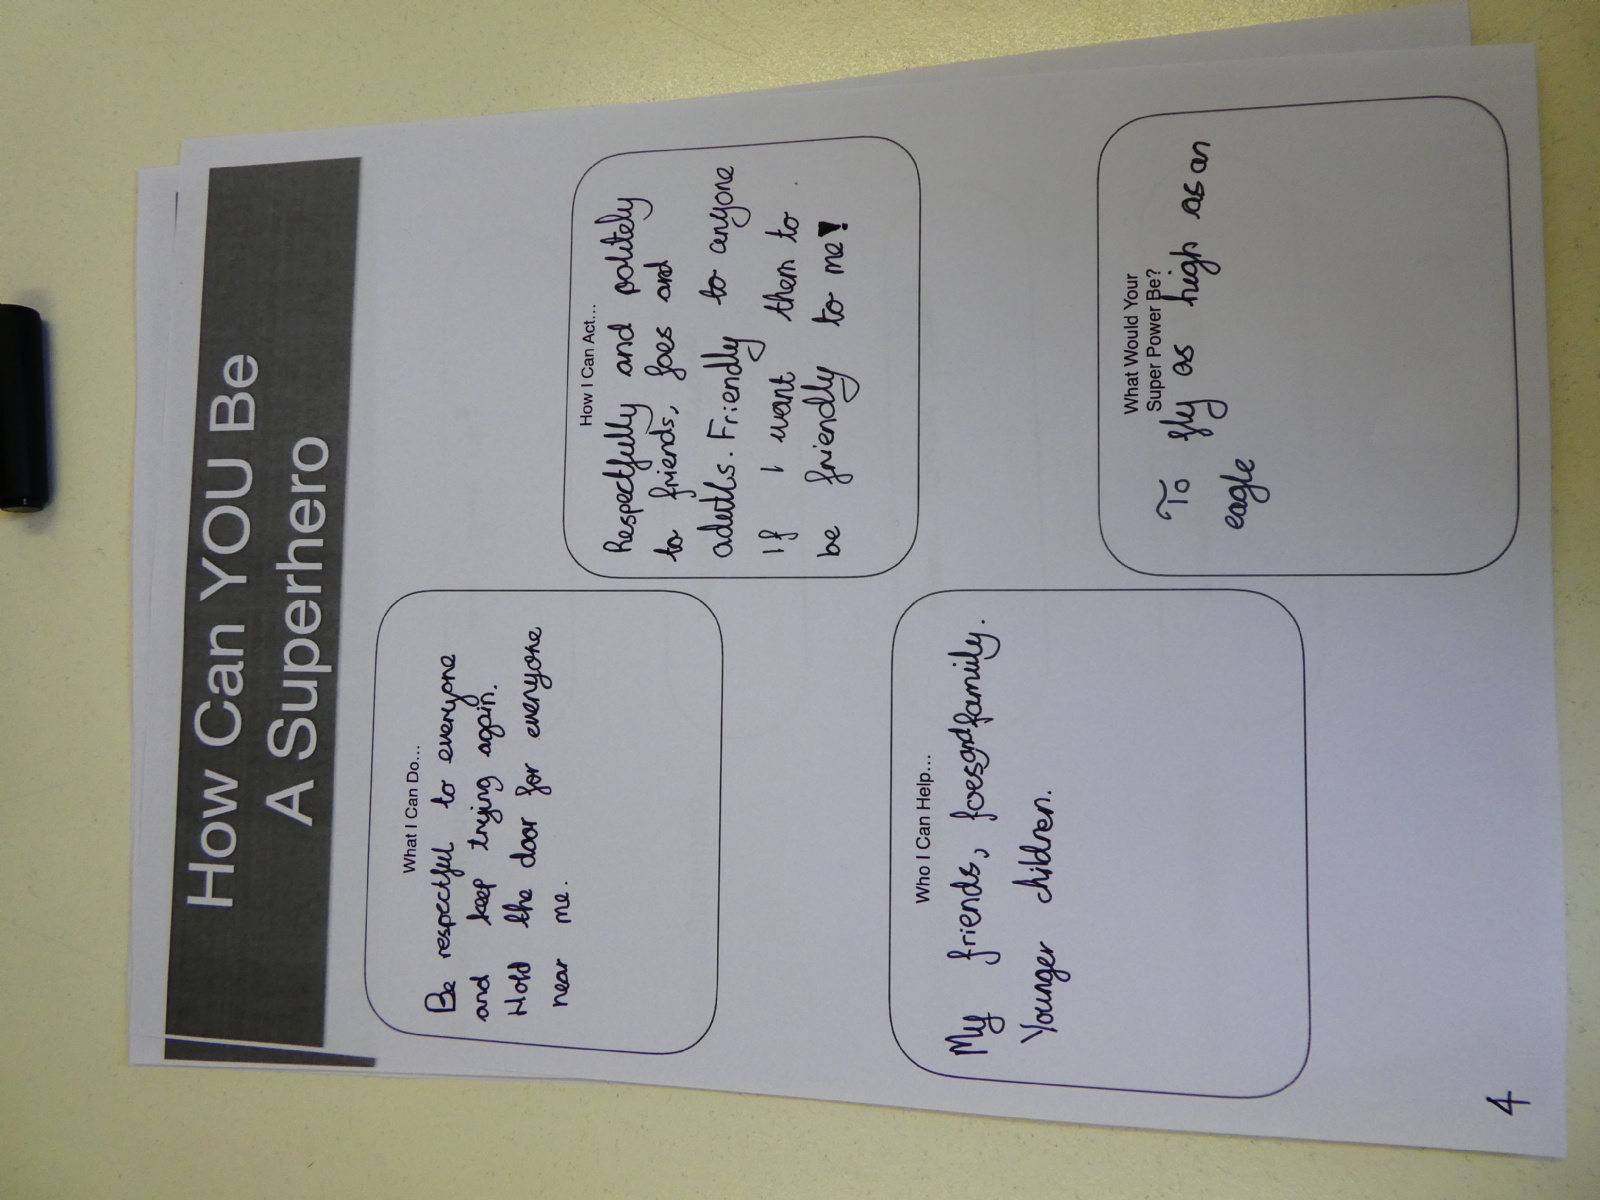 How Can YOU Be
A Superhero
What I Can Do...
Be respectful to everyone
and keep trying again.
Hold the door for everyone
near me.
How I Can Act...
Respectfully and politely
to friends, foes and
adults. Friendly to anyone
If I want them to
be friendly to me!
Who I Can Help...
My friends, foes and family.
Younger children.
What Would Your
Super Power Be?
To fly as high as an
eagle
4